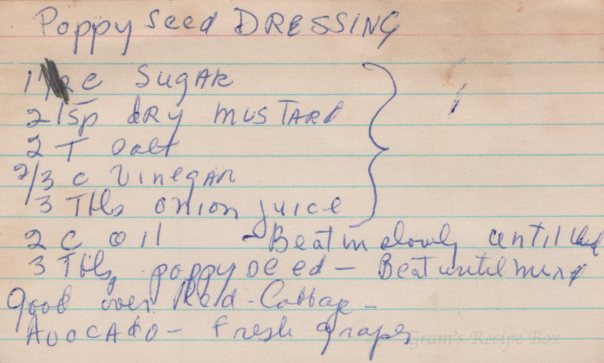 Poppy Seed DRESSING
1 1/2 c SUGAR
2 tsp dRY MUSTARd
2 T Salt
2/3 c Vinegar
3 Tbls onion juice
2 C oil - Beat in slowly until
3 Tbls poppy seed - Beat until
Good over Red - Cabbage -
AVOCAdO - Fresh grapes
gram's Recipe Box